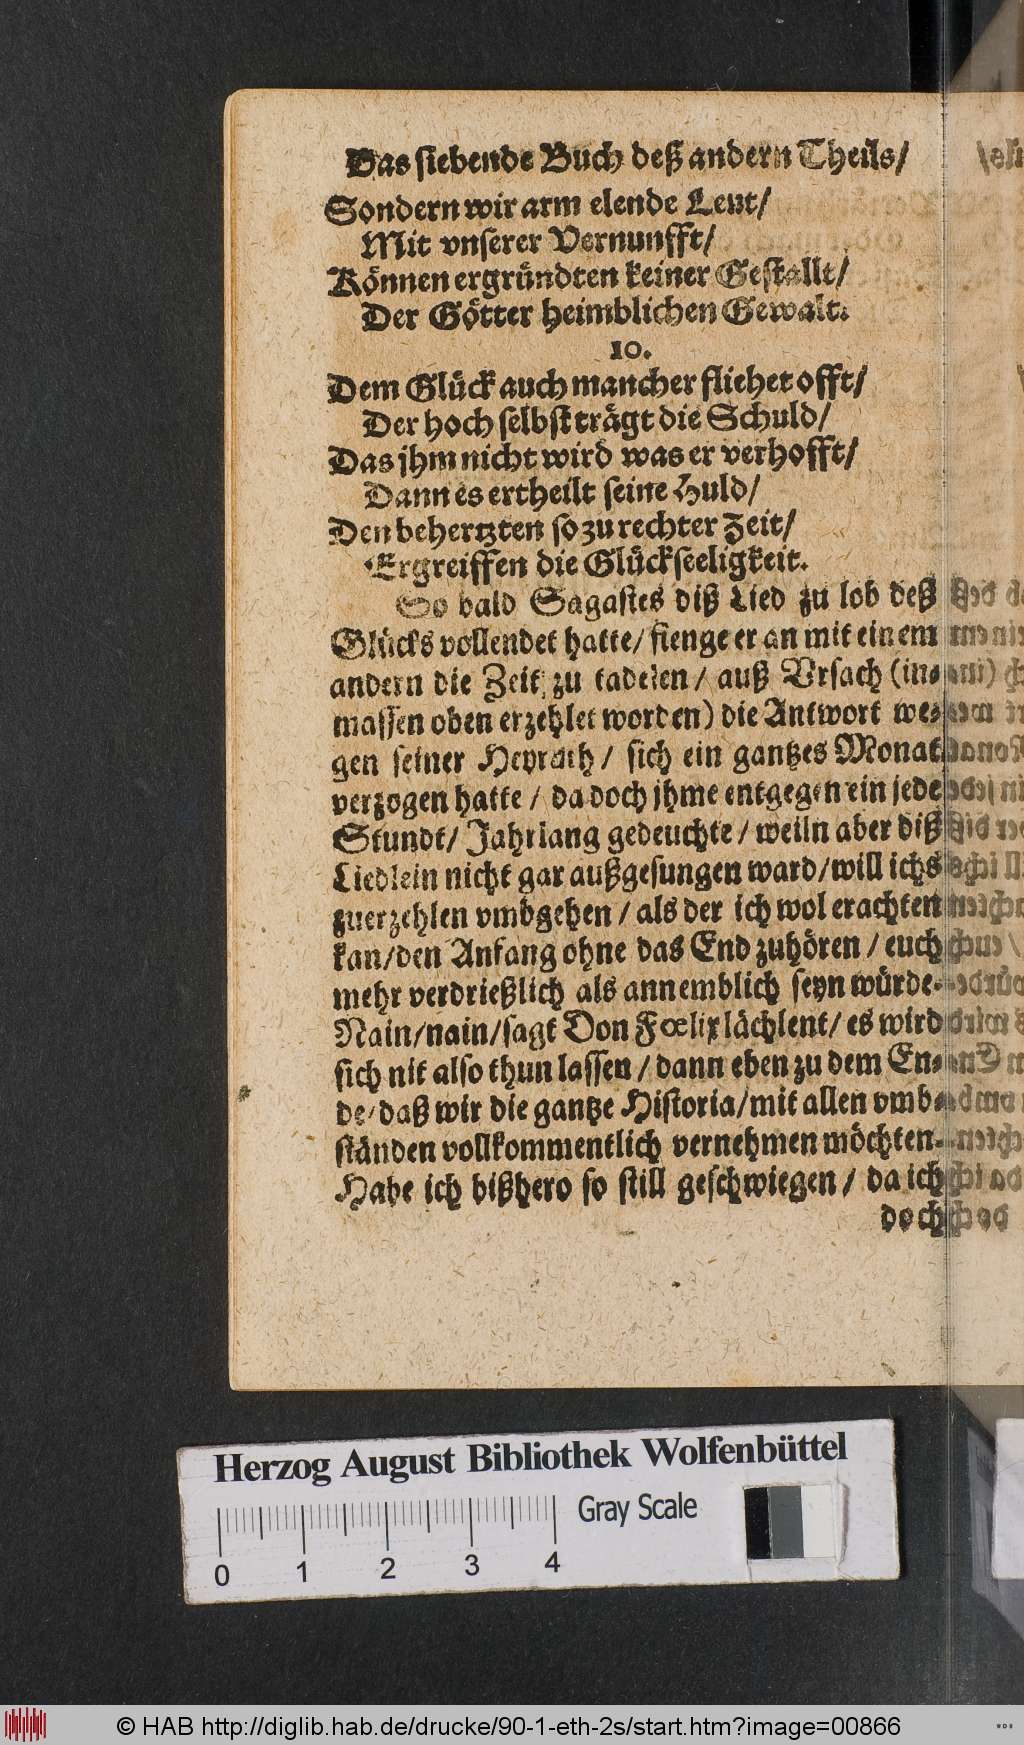 Das siebende Buch deß andern Theils/
Sondern wir arm elende Leut/
Mit vnserer Vernunfft/
Können ergründten keiner Gestallt/
Der Götter heimblichen Gewalt.
10.
Dem Glück auch mancher fliehet offt/
Der hoch selbst trägt die Schuld/
Das jhm nicht wird was er verhofft/
Dann es ertheilt seine Huld/
Den behertzten so zu rechter Zeit/
Ergreiffen die Glückseeligkeit.
So bald Sagastes diß Lied zu lob deß
Glücks vollendet hatte/ fienge er an mit einem
andern die Zeit zu tadelen/ auß Vrsach (in-
massen oben erzehlet worden) die Antwort we-
gen seiner Heyrath/ sich ein gantzes Monat
verzogen hatte/ da doch jhme entgegen ein jede
Stundt/ Jahrlang gedeuchte/ weiln aber diß
Liedlein nicht gar außgesungen ward/ will ichs
zuerzehlen vmbgehen/ als der ich wol erachten
kan/ den Anfang ohne das End zuhören/ euch
mehr verdrießlich als annemblich seyn würde.
Nain/ nain/ sagt Don Fœlix lächlent/ es wird
sich nit also thun lassen/ dann eben zu dem En-
de/ daß wir die gantze Historia/ mit allen vmb-
ständen vollkommentlich vernehmen möchten.
Habe ich bißhero so still geschwiegen/ da ich
doch
Herzog August Bibliothek Wolfenbüttel
Gray Scale
0 1 2 3 4
© HAB http://diglib.hab.de/drucke/90-1-eth-2s/start.htm?image=00866